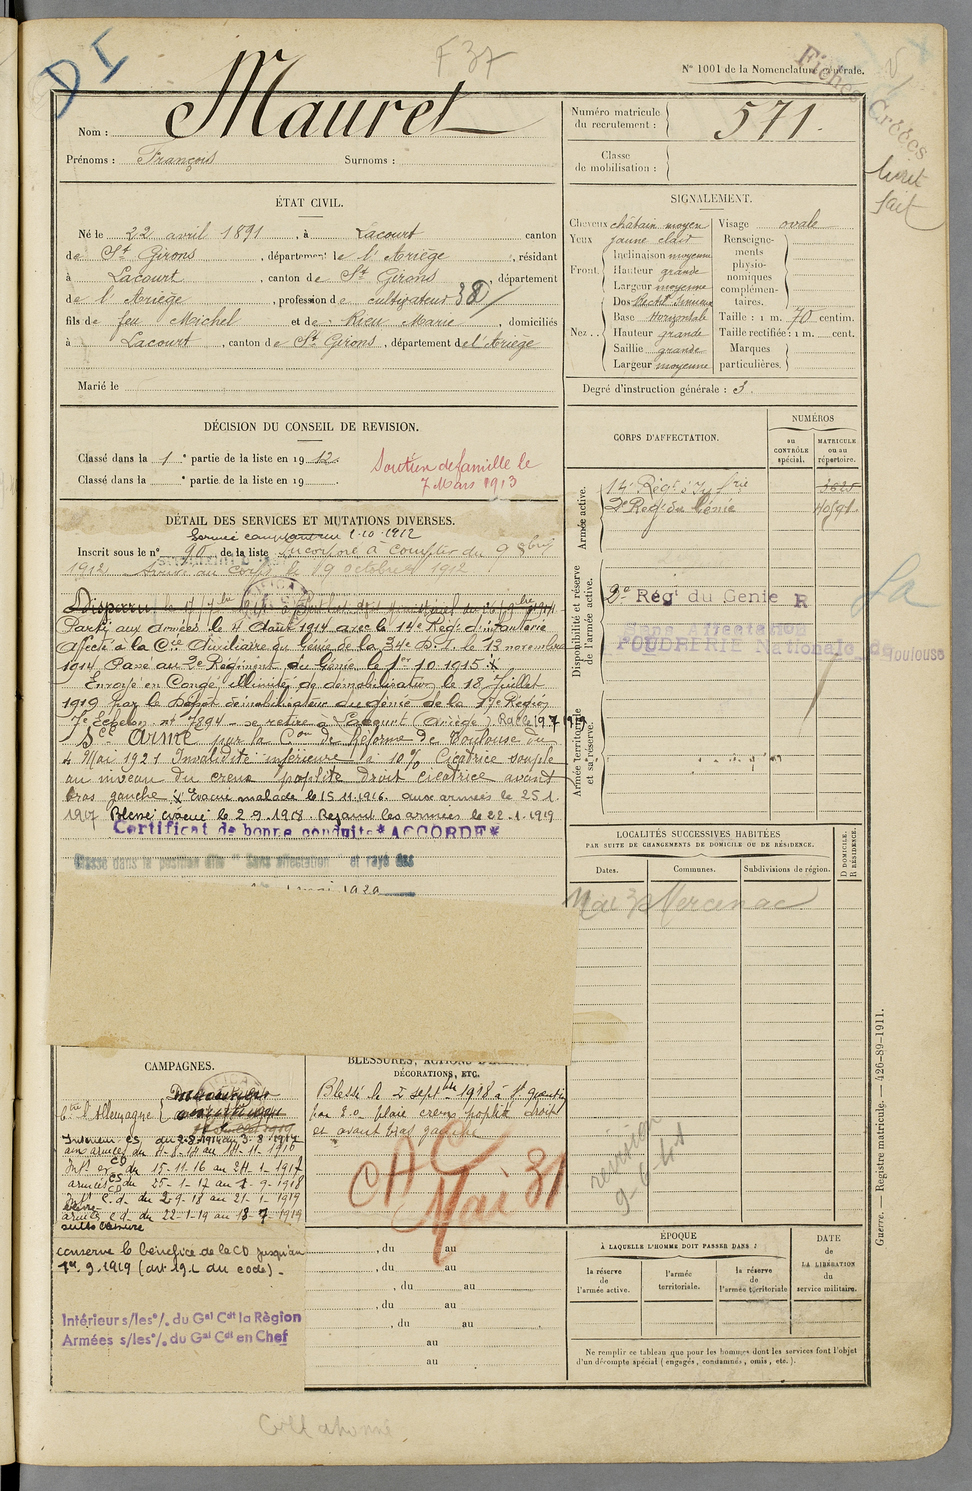 D I
F 37
N° 1001 de la Nomenclature générale.
Fiches Créées
livret
fait
Nom : Mauret
Prénoms : François Surnoms :
Numéro matricule
du recrutement : 571.
Classe
de mobilisation :
ÉTAT CIVIL.
Né le 22 avril 1891, à Lacourt canton
de St Girons, département de l'Ariège, résidant
à Lacourt, canton de St Girons, département
de l'Ariège, profession de cultivateur
fils de feu Michel et de Rieu Marie, domiciliés
à Lacourt, canton de St Girons, département de l'Ariège
Marié le
SIGNALEMENT.
Cheveux châtain moyen
Yeux jaune clair
Front
Inclinaison moyenne
Hauteur grande
Largeur moyenne
Nez
Dos Rect. Sinueux
Base Horizontale
Hauteur grande
Saillie grande
Largeur moyenne
Visage ovale
Renseigne-
ments
physio-
nomiques
complémen-
taires.
Taille : 1 m. 70 centim.
Taille rectifiée : 1 m. cent.
Marques
particulières.
Degré d'instruction générale : 3.
DÉCISION DU CONSEIL DE REVISION.
Classé dans la 1e partie de la liste en 1912.
Classé dans la e partie de la liste en 19
Soutien de famille le
7 Mars 1913
DÉTAIL DES SERVICES ET MUTATIONS DIVERSES.
1-10-1912
Inscrit sous le n° 90 de la liste Incorporé à compter du 9 8bre
1912 Arrivé au corps le 19 octobre 1912.
Disparu
Parti aux armées le 4 Août 1914 avec le 14e Régt d'infanterie
Affecté à la Cie Auxiliaire du Génie de la 34e D.I. le 13 novembre
1914 Passé au 2e Régiment du Génie le 1er 10 1915 X
Envoyé en Congé illimité de démobilisation le 18 Juillet
1919 par le Dépôt démobilisateur du génie de la 17e Région
7e Echelon n° 7894 - se retire à Lacourt (Ariège)
Scé Armé par la Con de Réforme de Toulouse du
4 Mai 1921 Invalidité inférieure à 10% Cicatrice souple
au niveau du creux poplité droit cicatrice avant
bras gauche X Evacué malade le 15.11.1916. aux armées le 25.1.
1917 Blessé évacué le 2.9.1918. Rejoint les armées le 22.1.1919
Certificat de bonne conduite * ACCORDÉ *
Classé dans la position dite "Sans affectation" et rayé des
CORPS D'AFFECTATION.
NUMÉROS
au
CONTRÔLE
spécial.
MATRICULE
ou au
répertoire.
Armée active.
14e Régt d'Infrie 3625
2e Régt du Génie
Disponibilité et réserve
de l'armée active.
2e Régt du Genie R
Sans Affectation
POUDRERIE Nationale de Toulouse
Armée territoriale
et sa réserve.
LOCALITÉS SUCCESSIVES HABITÉES
PAR SUITE DE CHANGEMENTS DE DOMICILE OU DE RÉSIDENCE.
D DOMICILE.
R RÉSIDENCE.
Dates. Communes. Subdivisions de région.
Mercenac
CAMPAGNES.
Ctre l'Allemagne
Intérieur CS du 2-8-1914 au 3-8-1914
aux armées du 4-8-14 au 14-11-1916
Intr CD du 15-11-16 au 24-1-1917
armées CS du 25-1-17 au 1-9-1918
Intr C.d. du 2-9-18 au 21-1-1919
armées C.d. du 22-1-19 au 18-7-1919
conserve le bénéfice de la CD jusqu'au
1er 9.1919 (art 19.1 du code).
Intérieur s/les °/. du Gal Cdt la Région
Armées s/les °/. du Gal Cdt en Chef
BLESSURES, ACTIONS D'ÉCLAT,
DÉCORATIONS, ETC.
Blessé le 2 septbre 1918 à St Quentin
par E.O. plaie creux poplité droit
et avant bras gauche
CAC
Mai 31
revision
9-6-41
, du au
, du au
, du au
, du au
, du au
au
au
ÉPOQUE
À LAQUELLE L'HOMME DOIT PASSER DANS :
la réserve
de
l'armée active.
l'armée
territoriale.
la réserve
de
l'armée territoriale
DATE
de
LA LIBÉRATION
du
service militaire.
Ne remplir ce tableau que pour les hommes dont les services font l'objet
d'un décompte spécial (engagés, condamnés, omis, etc.).
Guerre. — Registre matricule. — 426-89-1911.